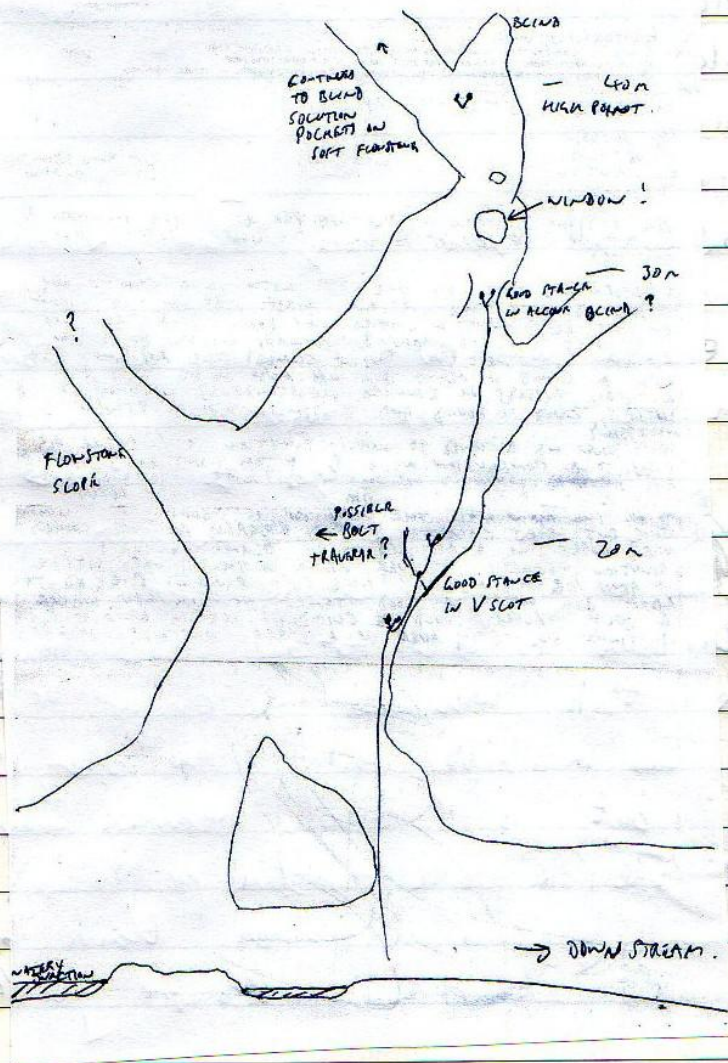 BLIND
CONTINUES
TO BLIND
SOLUTION
POCKETS IN
SOFT FLOWSTONE
40m
HIGH POINT.
WINDOW!
30m
GOOD STANCE
IN ALCOVE
BLIND ?
?
FLOWSTONE
SLOPE
POSSIBLE
← BOLT
TRAVERSE?
20m
GOOD STANCE
IN V SLOT
→ DOWNSTREAM.
WATERY
JUNCTION